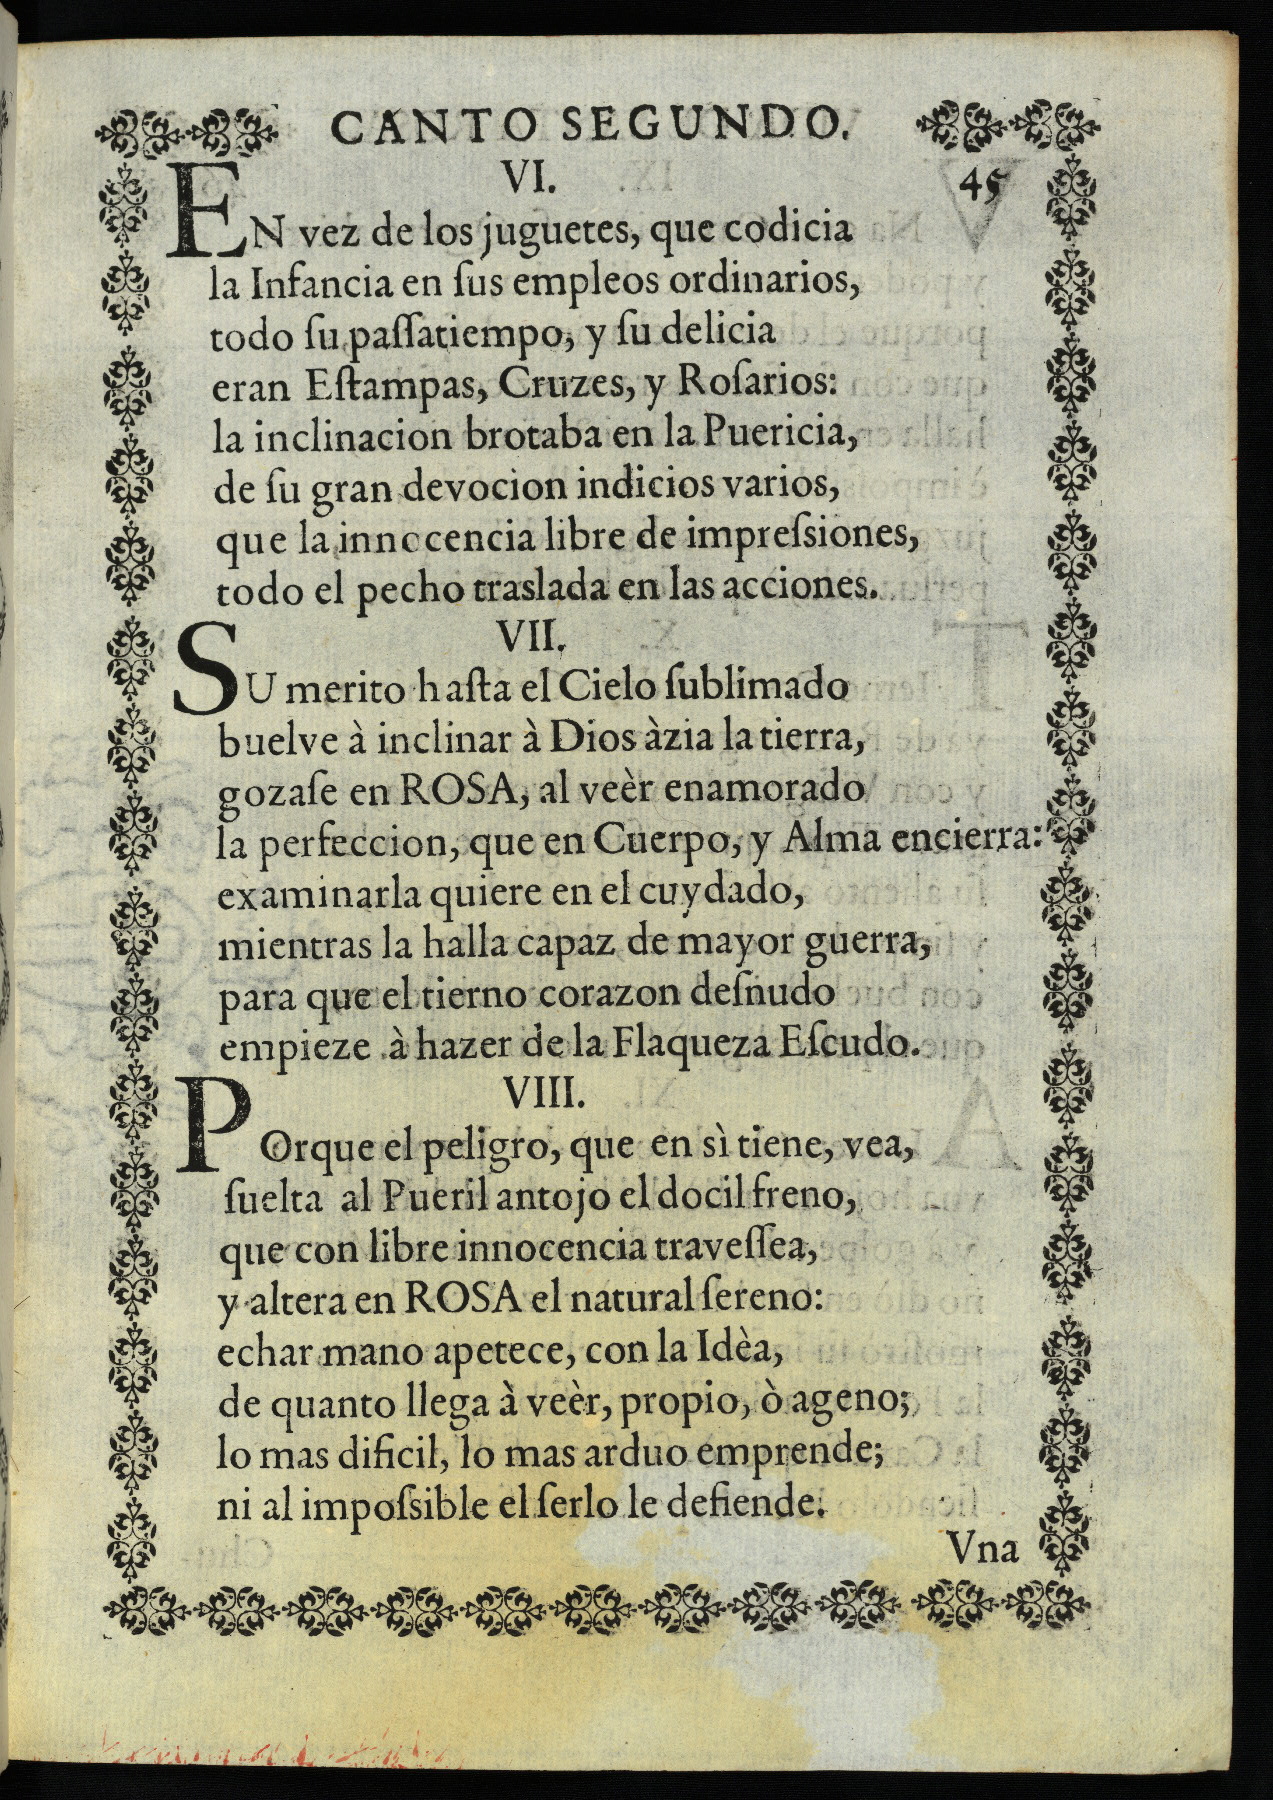 CANTO SEGUNDO.
VI.
45
EN vez de los juguetes, que codicia
la Infancia en ſus empleos ordinarios,
todo ſu paſſatiempo, y ſu delicia
eran Eſtampas, Cruzes, y Roſarios:
la inclinacion brotaba en la Puericia,
de ſu gran devocion indicios varios,
que la innocencia libre de impreſsiones,
todo el pecho traslada en las acciones.
VII.
SU merito haſta el Cielo ſublimado
buelve à inclinar à Dios àzia la tierra,
gozaſe en ROSA, al veèr enamorado
la perfeccion, que en Cuerpo, y Alma encierra:
examinarla quiere en el cuydado,
mientras la halla capaz de mayor guerra,
para que el tierno corazon deſnudo
empieze à hazer de la Flaqueza Eſcudo.
VIII.
POrque el peligro, que en sì tiene, vea,
ſuelta al Pueril antojo el docil freno,
que con libre innocencia traveſſea,
y altera en ROSA el natural ſereno:
echar mano apetece, con la Idèa,
de quanto llega à veèr, propio, ò ageno;
lo mas dificil, lo mas arduo emprende;
ni al impoſsible el ſerlo le defiende.
Vna